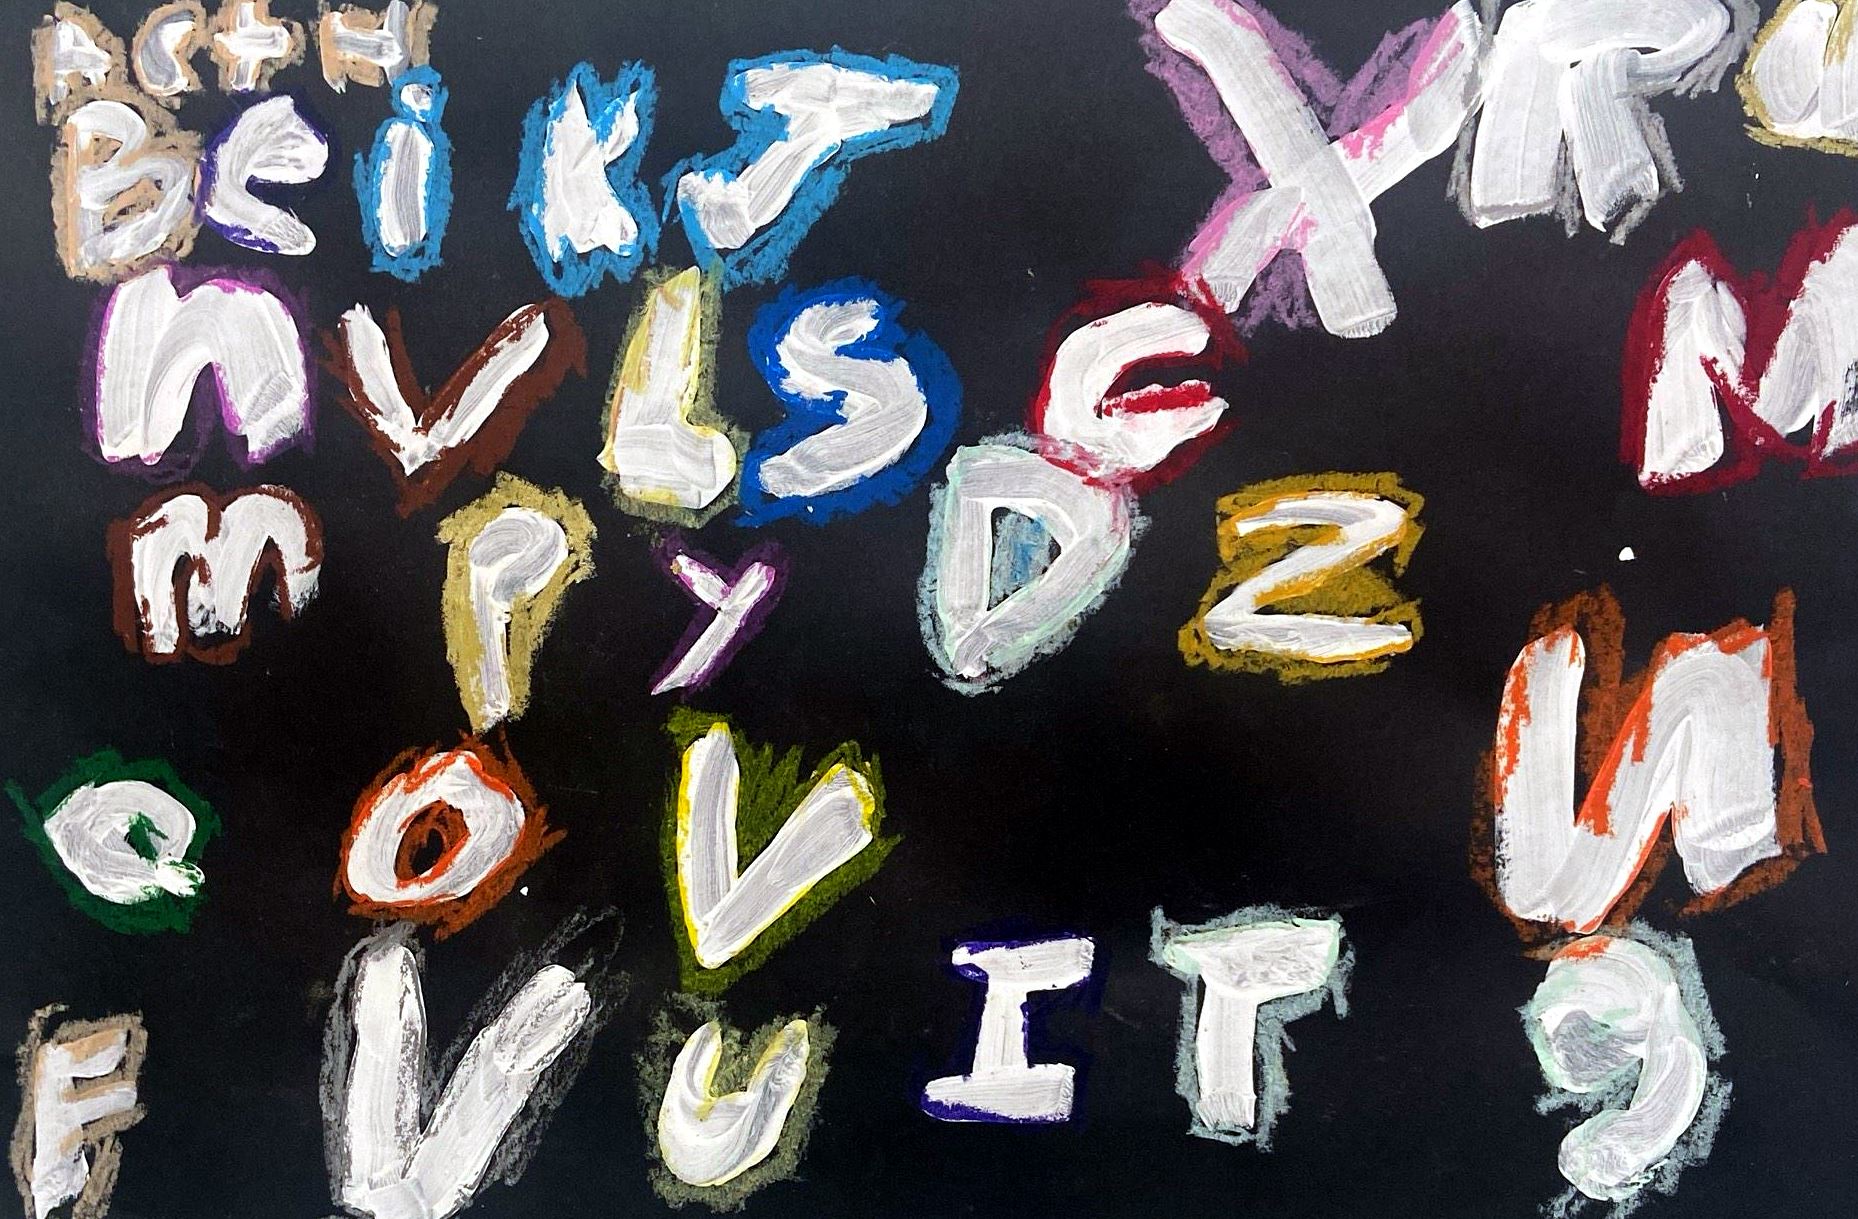 A C t H
B e i K J X R
n V L S e M
m P Y D Z
Q O V N
F V U I T 9